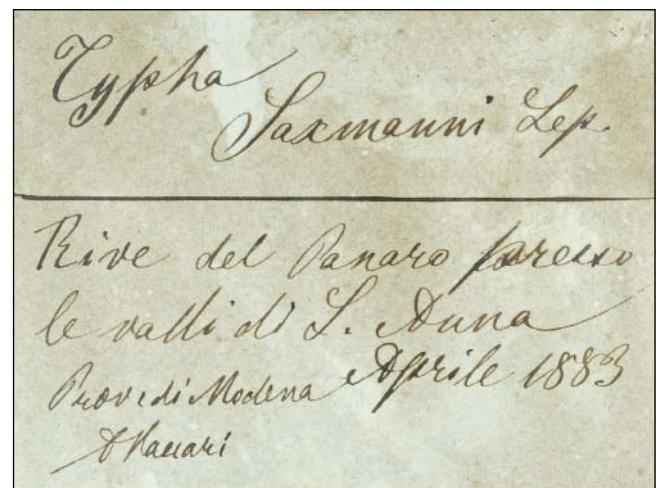 Typha
Laxmanni Lep.
Rive del Panaro presso
le valli di S. Anna
Prov. di Modena Aprile 1883
A Vaccari